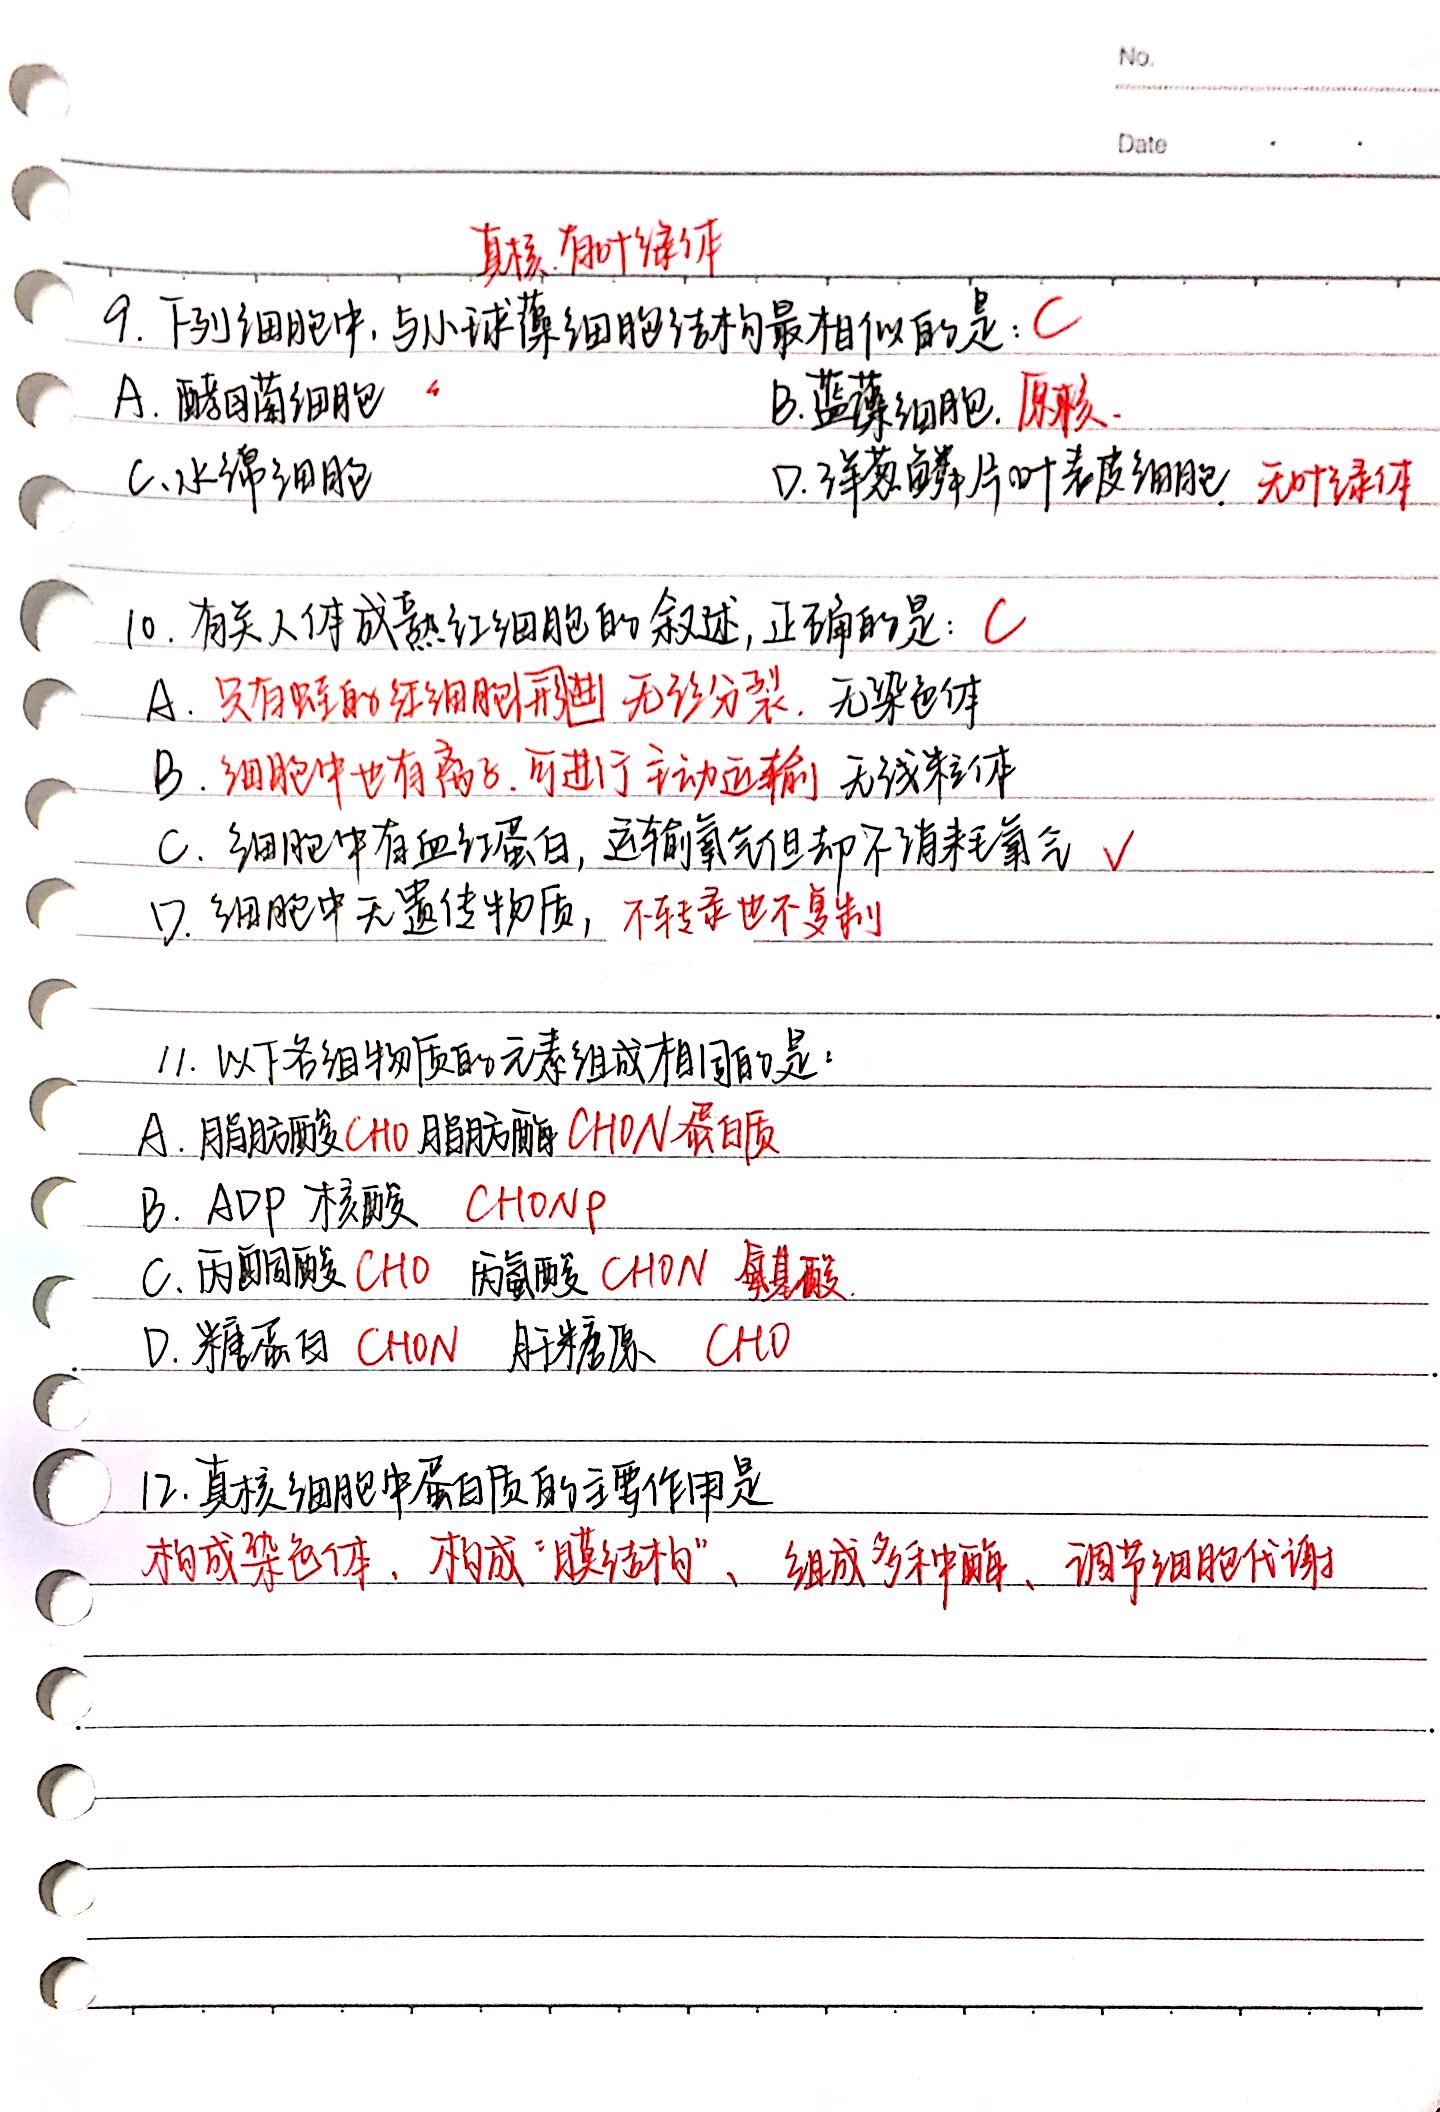 No.
Date
真核.有叶绿体
9.下列细胞中,与小球藻细胞结构最相似的是: C
A.酵母菌细胞 B.蓝藻细胞. 原核.
C.水绵细胞 D.洋葱鳞片叶表皮细胞. 无叶绿体
10.有关人体成熟红细胞的叙述,正确的是: C
A. 只有蛙的红细胞 无丝分裂. 无染色体
B. 细胞中也有离子.可进行主动运输 无线粒体
C. 细胞中有血红蛋白,运输氧气但却不消耗氧气 ✓
D. 细胞中无遗传物质, 不转录也不复制
11.以下各组物质的元素组成相同的是:
A.脂肪酸CHO 脂肪酶 CHON 蛋白质
B. ADP 核酸 CHONP
C.丙酮酸 CHO 丙氨酸 CHON 氨基酸.
D.糖蛋白 CHON 肝糖原 CHO
12.真核细胞中蛋白质的主要作用是
构成染色体、构成“膜结构”、组成多种酶、调节细胞代谢